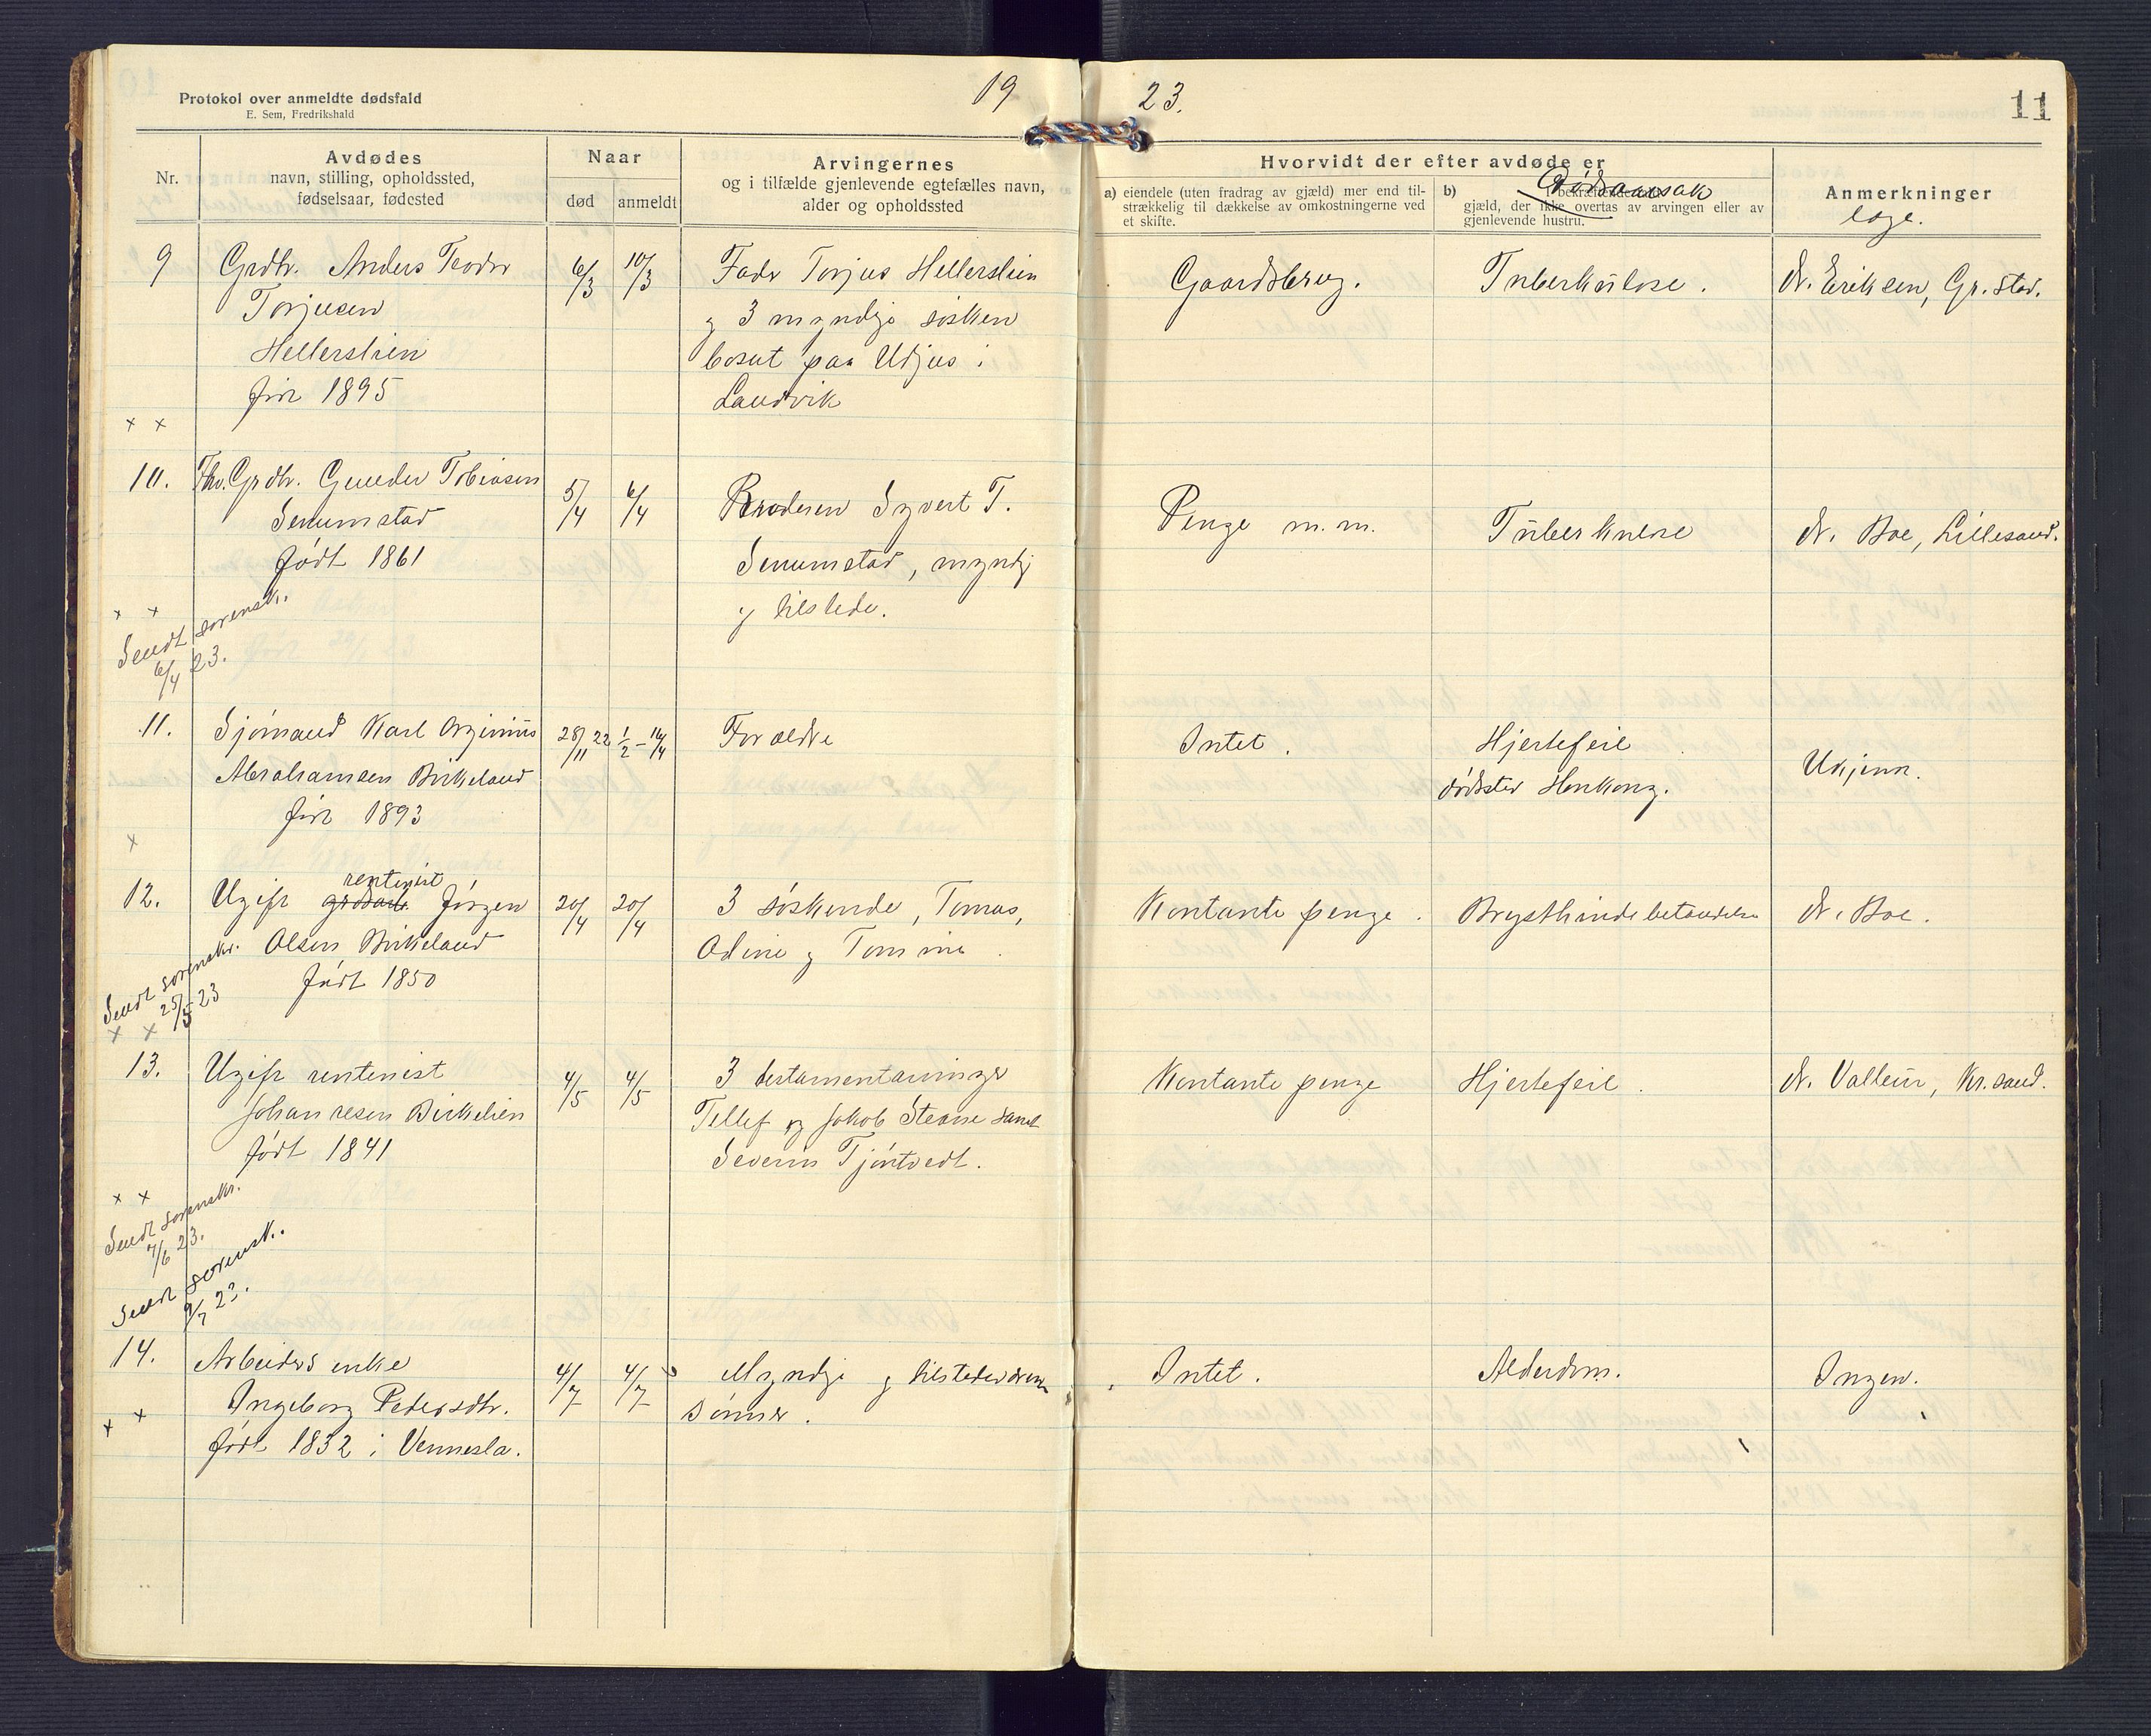 Protokol over anmeldte dødsfald
E. Sem, Fredrikshald
19
23.
11
Nr.
Avdødes
navn, stilling, opholdssted,
fødselsaar, fødested
Naar
død
anmeldt
Arvingernes
og i tilfælde gjenlevende egtefælles navn,
alder og opholdssted
Hvorvidt der efter avdøde er
a) eiendele (uten fradrag av gjæld) mer end til-
strækkelig til dækkelse av omkostningerne ved
et skifte.
b)
Dødsaarsak
gjæld, der ikke overtas av arvingen eller av
gjenlevende hustru.
Anmerkninger
læge.
9
Grdbr. Anders Teodor
Torjusen
Hellerslien
før 1895
6/3
10/3
Fader Torjus Hellerslien
og 3 myndige søsken
bosat paa Utjus i
Landvik
Gaardsbrug.
Tuberkulose.
dr. Eriksen, Gr.stad.
x x
10.
Fhv. Grdbr. Gunder Tobiasen
Senumstad
født 1861
5/4
6/4
Broderen Syvert T.
Senumstad, myndig
og tilstede.
Penge m.m.
Tuberkulose
dr. Boe, Lillesand.
x x
Sendt sorensk.
6/4 23.
11.
Sjømand Karl
Abrahamsen Birkeland
før 1893
28/11 22
1/2 - 16/4
Forældre
Intet.
Hjertefeil
dødssted Honkong.
Ukjenn.
x
12.
Ugift grdbr. rentenist Jørgen
Olsen Birkeland
født 1850
20/4
20/4
3 søskende, Tomas,
Odine og Tomine.
Kontante penge.
Brysthindebetændelse
dr. Boe.
Sendt sorenskr.
25/5 23
x x
13.
Ugift rentenist
Johannesen Birkelien
født 1841
4/5
4/5
3 testamentarvinger
Tellef og Jakob Steane samt
Severin Tjøntvedt.
Kontante penge
Hjertefeil.
dr. Valleur, Kr.sand.
x x
Sendt sorenskr.
7/6 23.
Sendt sorensk.
9/7 23.
14.
Arbeiders enke
Ingeborg Pedersdtr.
født 1832 i Vennesla.
4/7
4/7
Myndige og tilstedeværende
sønner.
Intet.
Alderdom.
Ingen.
x x